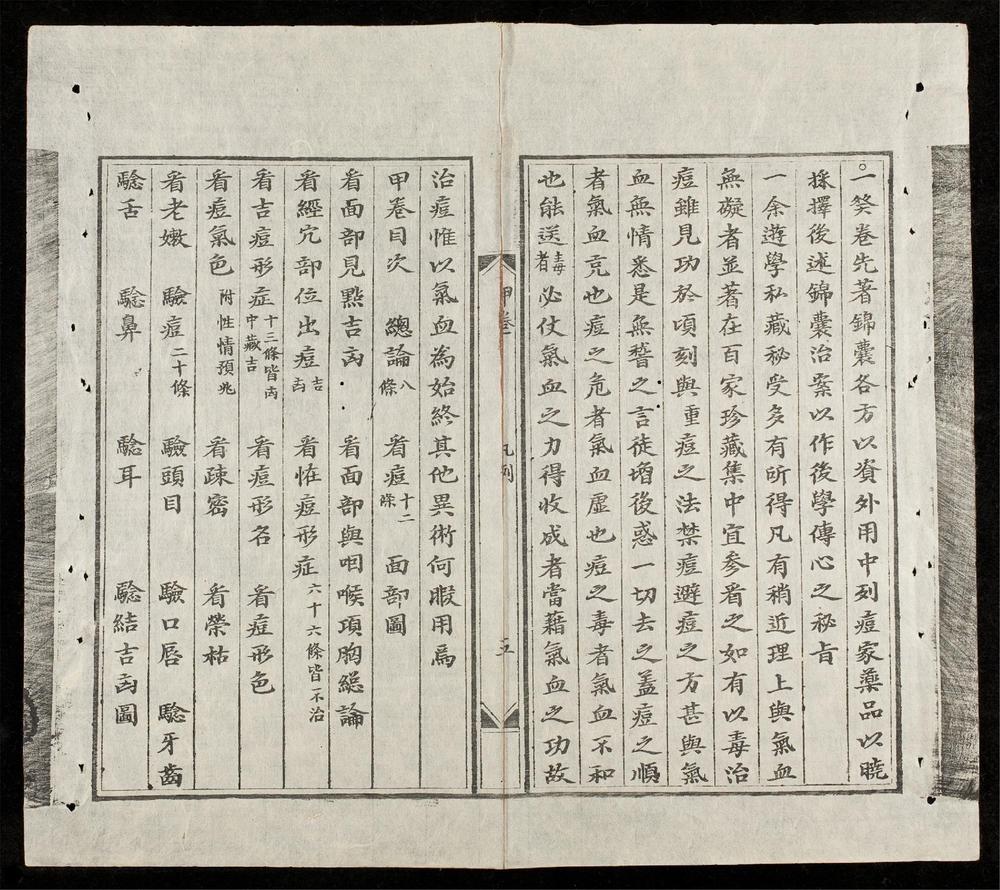 一癸卷先著錦囊各方以資外用中列痘家藥品以曉
採擇後述錦囊治案以作後學傳心之秘旨
一余遊學私藏秘受多有所得凡有稍近理上與氣血
無礙者並著在百家珍藏集中宜參看之如有以毒治
痘雖見功於頃刻與重痘之法禁痘避痘之方甚與氣
血無情悉是無稽之言徒增後惑一切去之蓋痘之順
者氣血充也痘之危者氣血虛也痘之毒者氣血不和
也能送毒者必仗氣血之力得收成者當藉氣血之功故
甲卷 凡例 五
治痘惟以氣血為始終其他異術何暇用焉
甲卷目次 總論八條 看痘十二條 面部圖
看面部見點吉凶 看面部與咽喉項胸總論
看經穴部位出痘吉凶 看怪痘形症六十六條皆不治
看吉痘形症十三條皆凶中藏吉 看痘形名 看痘形色
看痘氣色附性情預兆 看疎密 看榮枯
看老嫩 驗痘二十條 驗頭目 驗口唇 驗牙齒
驗舌 驗鼻 驗耳 驗結吉凶圖